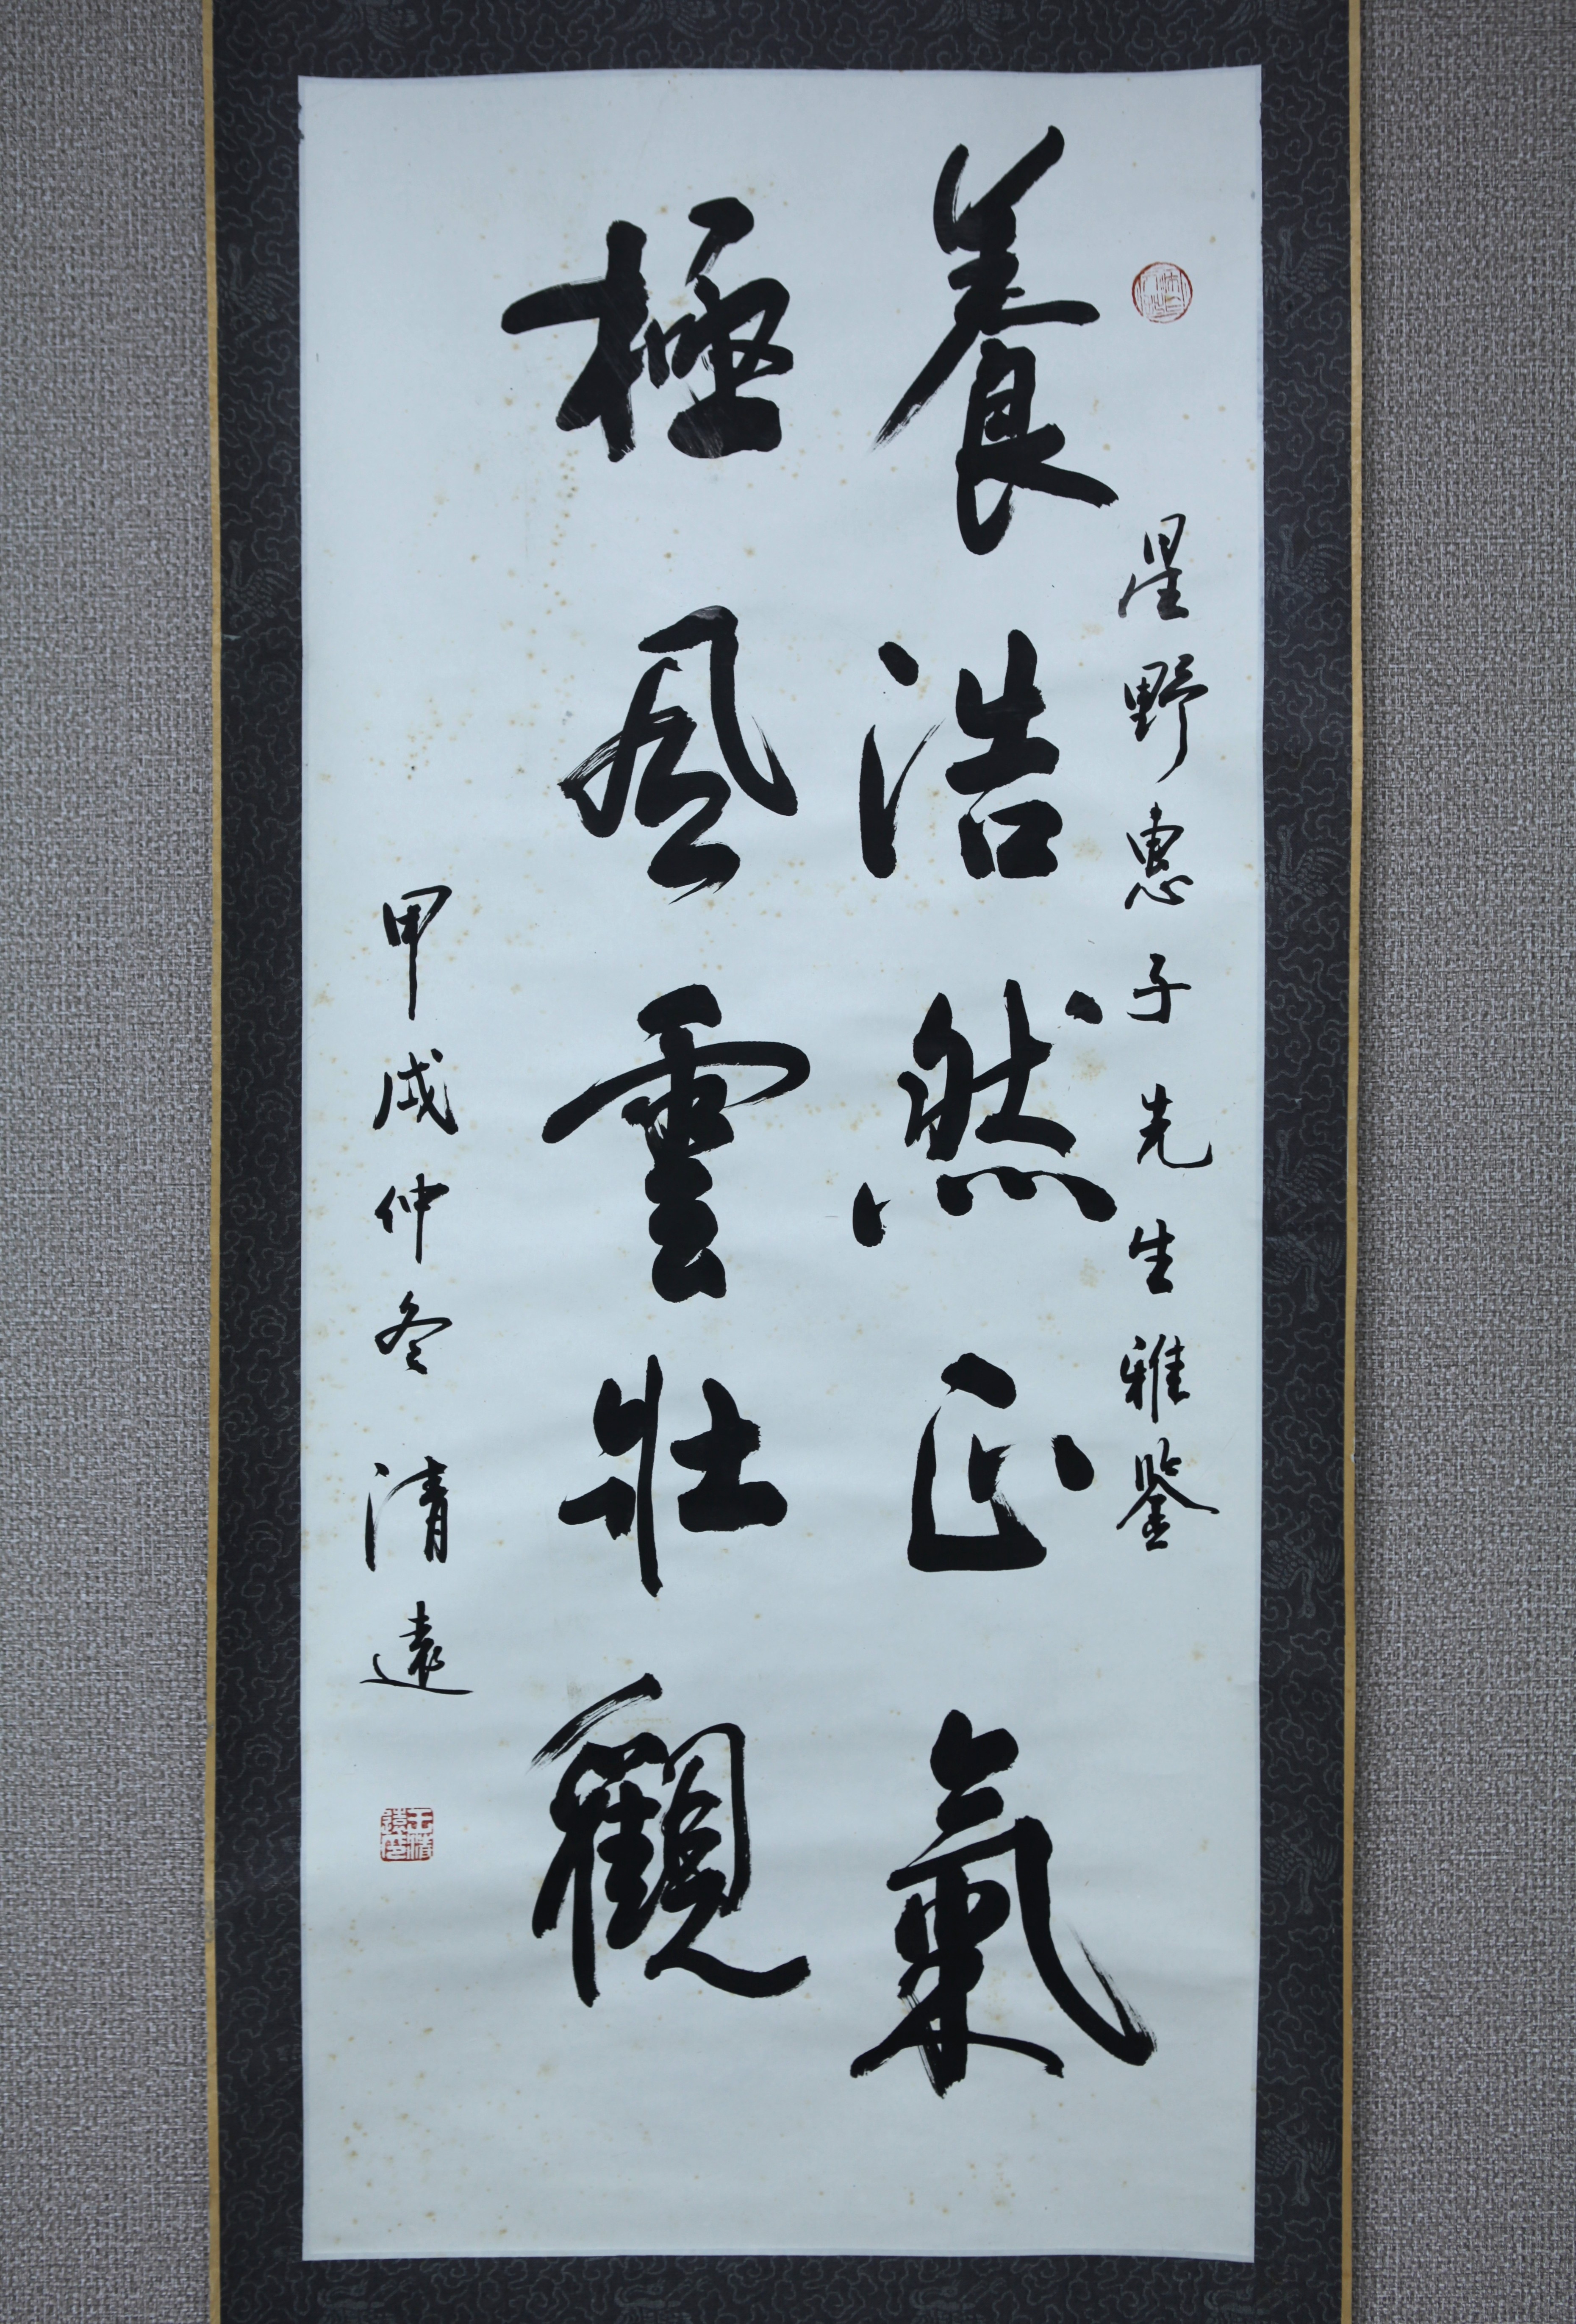 星野惠子先生雅鉴
養浩然正氣
極風雲壯觀
甲戌仲冬 清遠
王清遠印